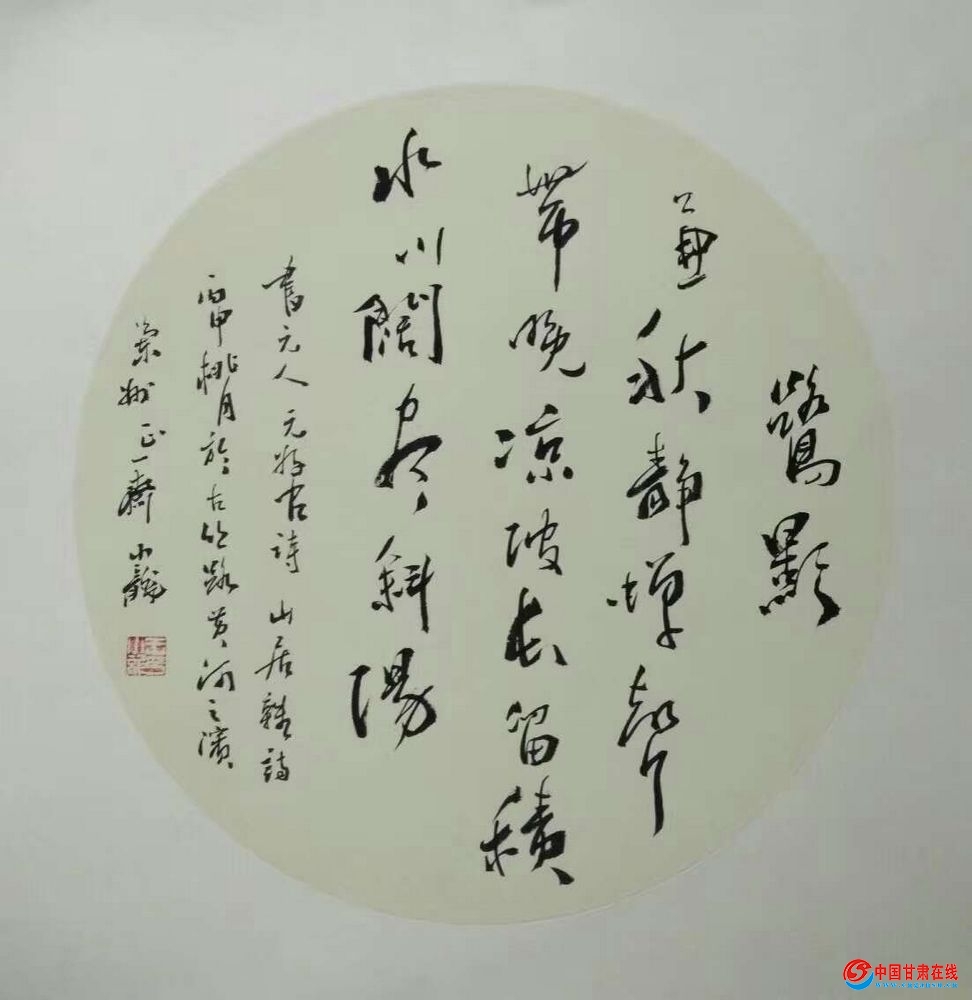 鷺影
兼秋靜蟬聲
帶晚凉陂長留積
水川闊尽斜陽
書元人元好问詩 山居雜詩
丙申桃月於古丝路黄河之濱
蘭州正一齋 小龍
中国甘肃在线